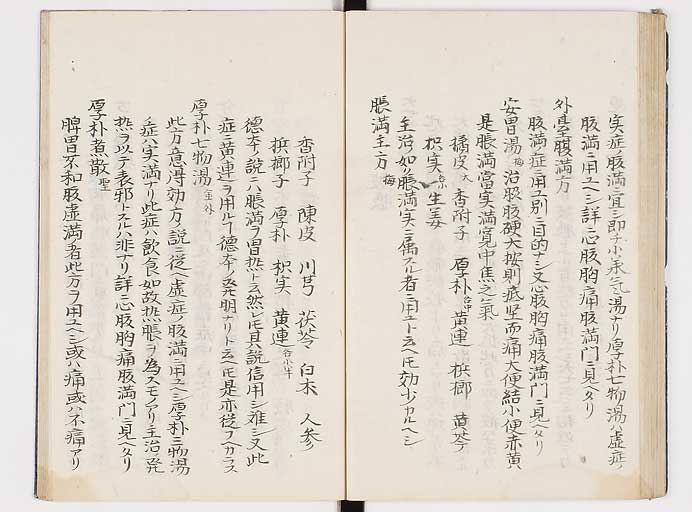 実症ノ腹満ニ宜シ即チ小承気湯ナリ厚朴七物湯ハ虚症ノ
腹満ニ用ユヘシ詳ニ心腹胸痛腹満門ニ見ヘタリ
外臺腹満方
腹満ノ症ニ用ユ別ニ目的ナシ又心腹胸痛腹満門ニ見ヘタリ
安胃湯 梅 治股腹硬大按則底堅而痛大便結小便赤黄
是脹満當実満寛中焦之氣
橘皮 大 香附子 厚朴 中 黄連 梹榔 黄芩
枳実 各小 生姜
主治ノ如ク脹満実ニ属スル者ニ用ユト云ヘ𪜈効少カルヘシ
脹満主方 梅
香附子 陳皮 川芎 茯苓 白朮 人参
梹榔子 厚朴 枳実 黄連 各小半
徳本ノ説ニハ脹満ヲ胃熱ト云然レ𪜈其説信用シ難シ又此
症ニ黄連ヲ用ルヿ徳本ノ発明ナリト云ヘ𪜈是亦従フヘカラス
厚朴七物湯 金 外
此方意得効方ノ説ニ従ヘ虚症ノ腹満ニ用ユヘシ厚朴三物湯
ノ症ハ実満ナリ此症ハ飲食如故熱脹ヲ為スモノナリ主治ノ発
熱ヲ以テ表邪トスルハ非ナリ詳ニ心腹胸痛腹満門ニ見ヘタリ
厚朴煮散 聖
脾胃不和腹虚満ノ者此方ヲ用ユヘシ或ハ痛或ハ不痛アリ